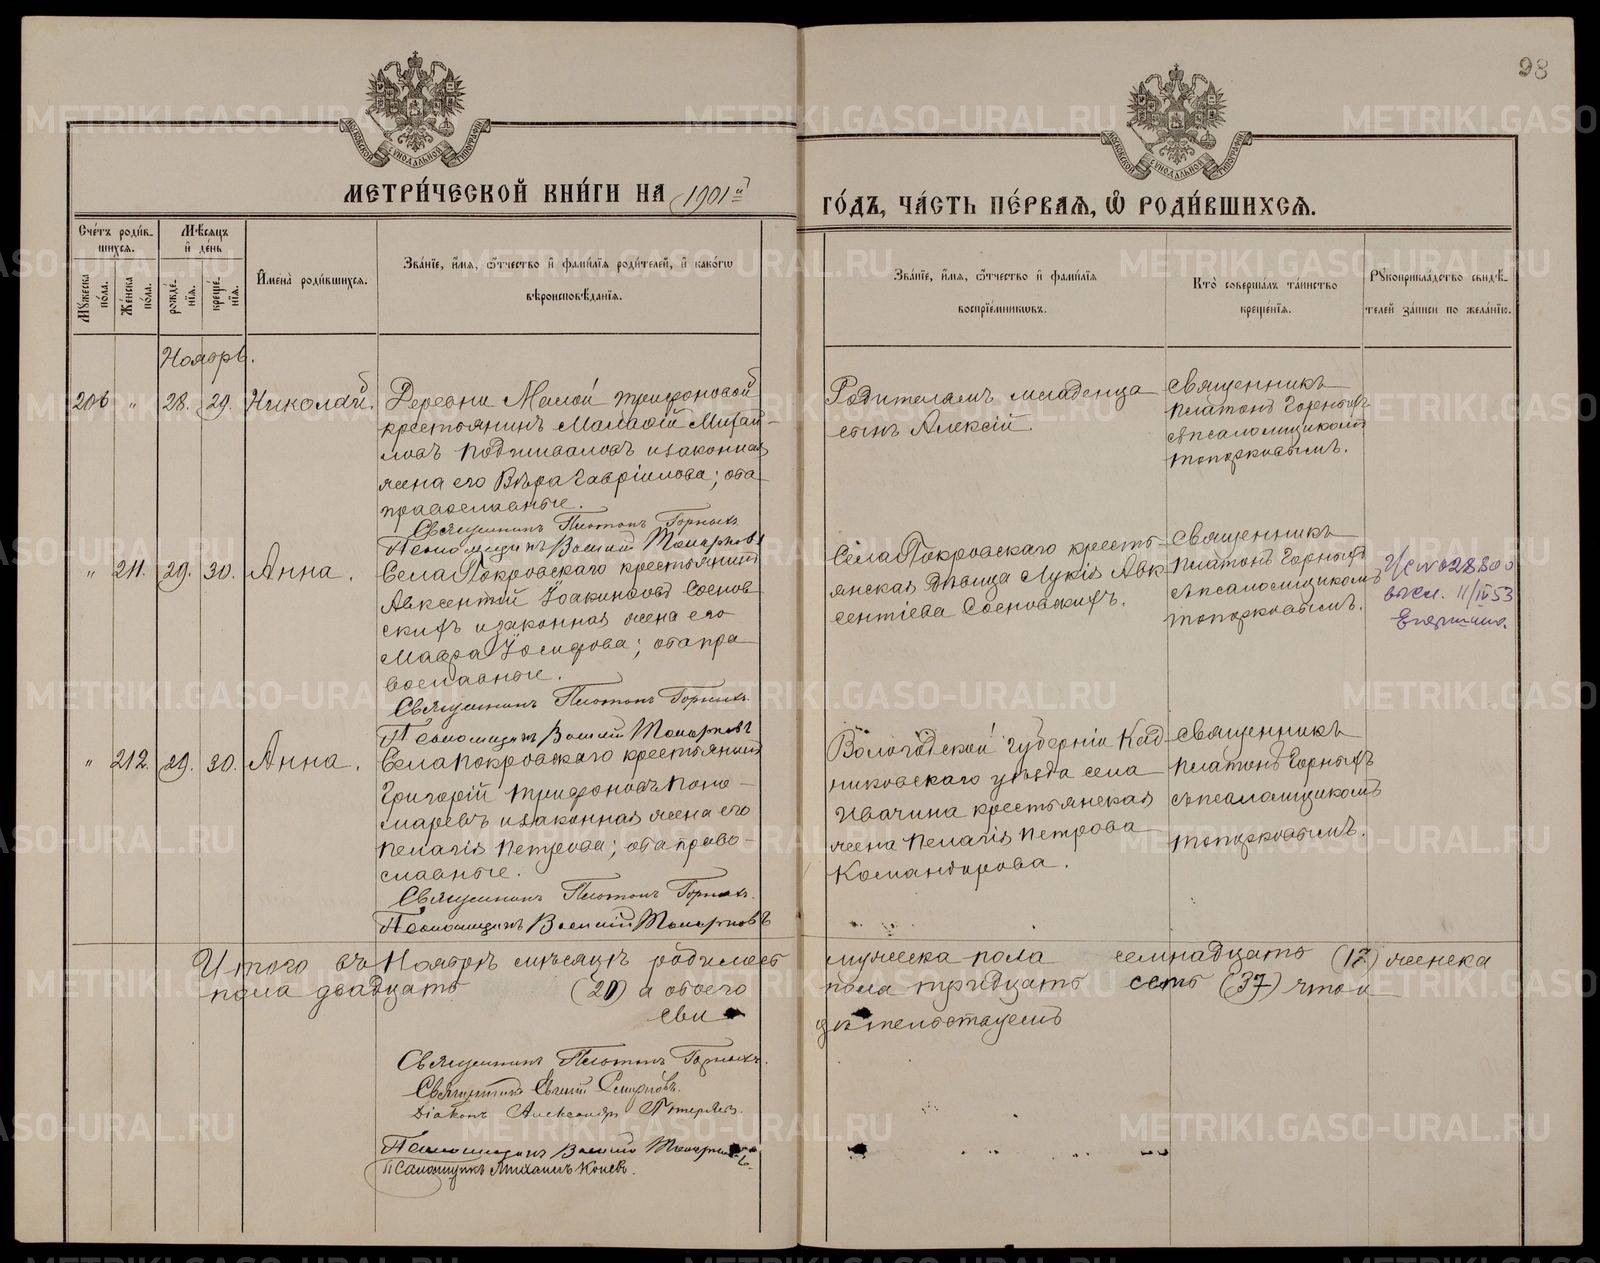 98
МОСКОВСКОЙ СѴНОДАЛЬНОЙ ТИПОГРАФІИ
МОСКОВСКОЙ СѴНОДАЛЬНОЙ ТИПОГРАФІИ
МЕТРИ́ЧЕСКОЙ КНИ́ГИ НА 1901й
ГО́ДЪ, ЧА́СТЬ ПЕ́РВАѦ, Ѡ҆ РОДИ́ВШИХСѦ.
Счетъ роди́вшихсѧ.
Мꙋжеска по́ла.
Же́нска по́ла.
Мѣ́сѧцъ и҆ де́нь
рожде́нїѧ.
креще́нїѧ.
И҆мена̀ роди́вшихсѧ.
Зва́нїе, и҆́мѧ, ѻ҆́тчество и҆ фами́лїѧ роди́телей, и҆ како́гѡ
вѣроисповѣ́данїѧ.
Зва́нїе, и҆́мѧ, ѻ҆́тчество и҆ фами́лїѧ
воспрїе́мникѡвъ.
Кто̀ соверша́лъ та́инство
креще́нїѧ.
Рꙋкоприкла́дство свидѣ́-
телей за́писи по жела́нїю.
Ноябрь.
206 " 28. 29. Николай.
Деревни Малой Трифоновой
крестьянинъ Малафій Михай-
ловъ Подшиваловъ и законная
жена его Вѣра Гавріилова; оба
православные.
Священникъ Платонъ Горныхъ
Псаломщикъ Василій Топорковъ
Родителямъ младенца
сынъ Алексій.
Священникъ
Платонъ Горныхъ
съ псаломщикомъ
Топорковымъ.
" 211. 29. 30. Анна.
Села Покровскаго крестьянинъ
Авксентій Іоакимовъ Соснов
скихъ и законная жена его
Мавра Іосифова; оба пра
вославные.
Священникъ Платонъ Горныхъ.
Псаломщикъ Василій Топорковъ
Села Покровскаго кресть-
янская дѣвица Лукія Авк
сентіева Сосновскихъ.
Священникъ
Платонъ Горныхъ
съ псаломщикомъ
Топорковымъ.
11/IV 53
" 212. 29. 30. Анна.
Села Покровскаго крестьянинъ
Григорій Трифоновъ Поно-
маревъ и законная жена его
Пелагія Петрова; оба право-
славные.
Священникъ Платонъ Горныхъ.
Псаломщикъ Василій Топорковъ
Вологодской губерніи Кад
никовскаго уѣзда села
Ивачина крестьянская
жена Пелагія Петрова
Командирова.
Священникъ
Платонъ Горныхъ
съ псаломщикомъ
Топорковымъ.
Итого въ Ноябрѣ мѣсяцѣ родилось мужеска пола семнадцать (17) женска
пола двадцать (20) а обоего пола тридцать семь (37) что и
сви дѣтельствуемъ
Священникъ Платонъ Горныхъ.
Священникъ Евгеній Смирновъ.
Діаконъ Александръ
Псаломщикъ Василій Топорковъ.
Псаломщикъ Михаилъ Коневъ.
METRIKI.GASO-URAL.RU